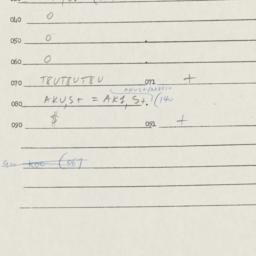 040 0
050 0
060 0
070 TEUTEUTEU 071 +
080 AKU,S+ = AK1, S+. 1(140
090 $ 091 +